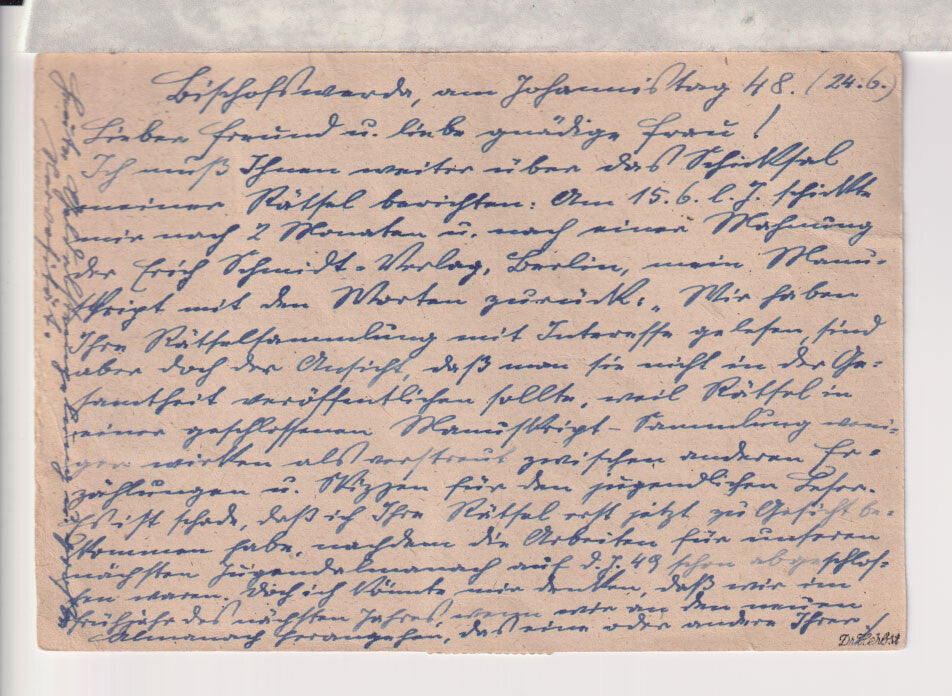 Bischofswerda, am Johannistag 48. (24.6.)
Lieber Freund u. liebe gnädige Frau!
Ich muß Ihnen weiter über das Schicksal
meiner Rätsel berichten: Am 15.6. l. J. schickte
mir nach 2 Monaten u. nach einer Mahnung
der Erich Schmidt-Verlag, Berlin, mein Manu-
skript mit den Worten zurück: „Wir haben
Ihre Rätselsammlung mit Interesse gelesen, sind
aber doch der Ansicht, daß man sie nicht in der Ge-
samtheit veröffentlichen sollte, weil Rätsel in
einer geschlossenen Manuskript-Sammlung weni-
ger wirken als verstreut zwischen anderen Er-
zählungen u. Skizzen für den jugendlichen Leser.
Es ist schade, daß ich Ihre Rätsel erst jetzt zu Gesicht be-
kommen habe, nachdem die Arbeiten für unseren
nächsten Jugendalmanach auf d. J. 49 schon abgeschlos-
sen waren. Doch ich könnte mir denken, daß wir im
Frühjahr des nächsten Jahres, wenn wir an den neuen
Almanach herangehen, das eine oder andere Ihrer
Dr. Herbst